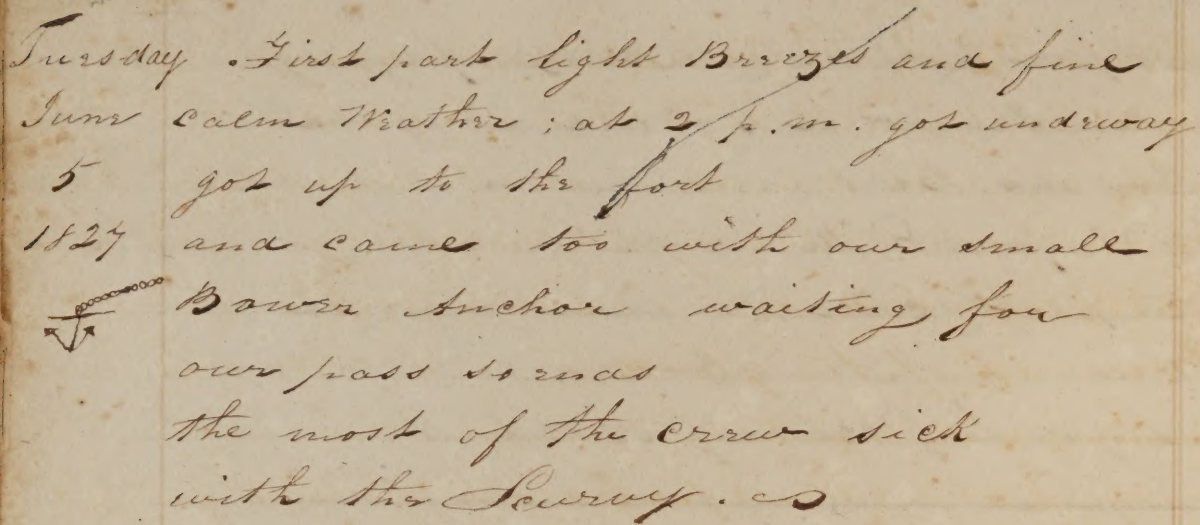 Tuesday . First part light Breezes and fine
June calm Weather ; at 2 p.m. got underway
5 got up to the fort
1827 and came too with our small
Bower Anchor waiting for
our pass so ends
the most of the crew sick
with the Scurvy .